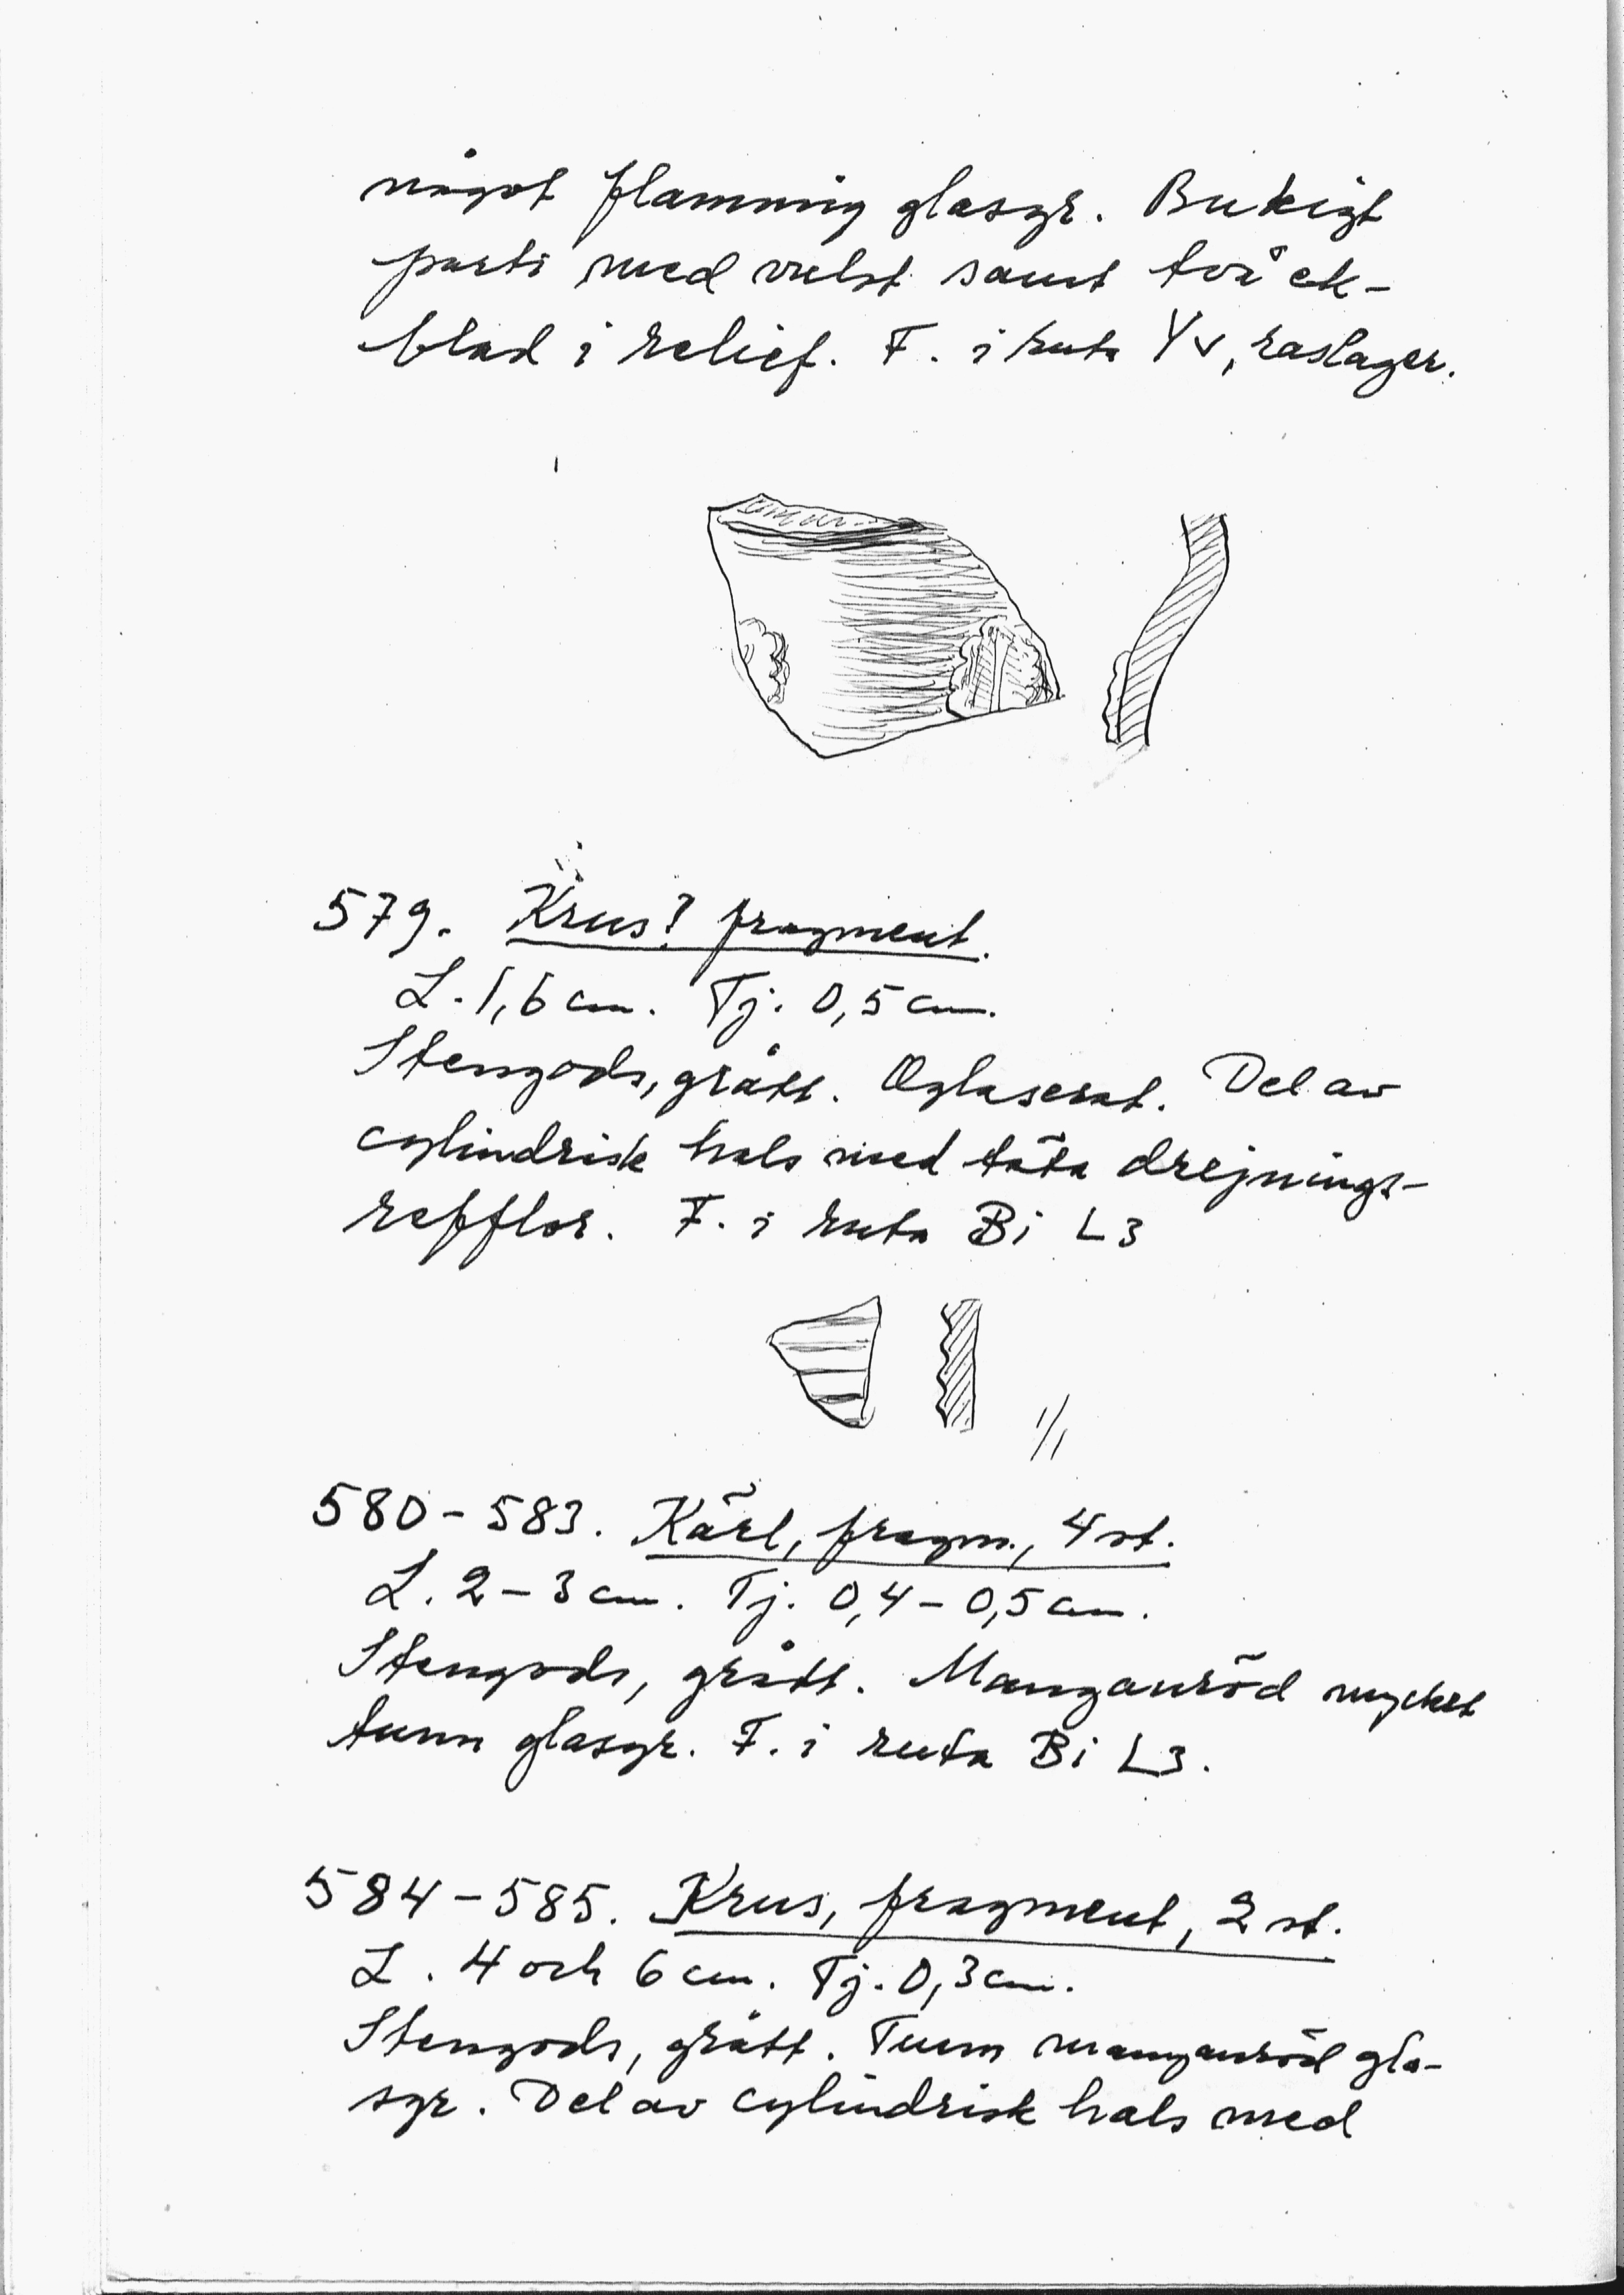 något flammig glasyr. Bukigt
parti med vulst samt två ek-
blad i relief. F. i ruta Yv, raslager.
579. Krus? fragment.
L. 1,6 cm. Tj. 0,5 cm.
Stengods, grått. Oglaserat. Del av
cylindrisk hals med täta drejnings-
refflor. F. i ruta Bi L3
1/1
580-583. Kärl, fragm., 4 st.
L. 2-3 cm. Tj. 0,4-0,5 cm.
Stengods, grått. Manganröd mycket
tunn glasyr. F. i ruta Bi L3.
584-585. Krus, fragment, 2 st.
L. 4 och 6 cm. Tj. 0,3 cm.
Stengods, grått. Tunn manganröd gla-
syr. Del av cylindrisk hals med